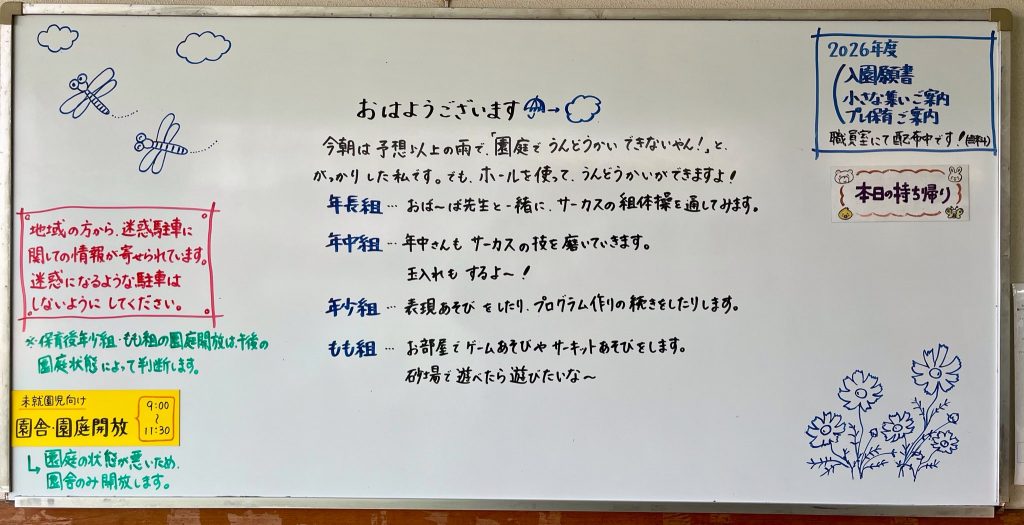 おはようございます→
今朝は予想以上の雨で、「園庭でうんどうかいできないやん!」と、
がっかりした私です。でも、ホールを使って、うんどうかいができますよ!
年長組…おば〜ば先生と一緒に、サーカスの組体操を通してみます。
年中組…年中さんもサーカスの技を磨いていきます。
玉入れもするよ〜!
年少組…表現あそびをしたり、プログラム作りの続きをしたりします。
もも組…お部屋でゲームあそびやサーキットあそびをします。
砂場で遊べたら遊びたいな〜
地域の方から、迷惑駐車に
関しての情報が寄せられています。
迷惑になるような駐車は
しないようにしてください。
※保育後年少組・もも組の園庭開放は、午後の
園庭状態によって判断します。
未就園児向け
園舎・園庭開放
9:00
〜
11:30
↳園庭の状態が悪いため、
園舎のみ開放します。
2026年度
入園願書
小さな集いご案内
プレ保育ご案内
職員室にて配布中です!(無料)
本日の持ち帰り